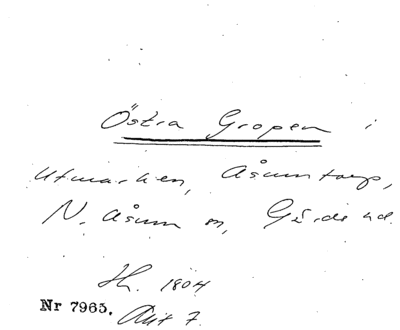 Östra Gropen i
Utmarken, Åsumtorp,
N. Åsum sn, Gärds hd.
Sk. 1804
Nr 7965. Akt 7.